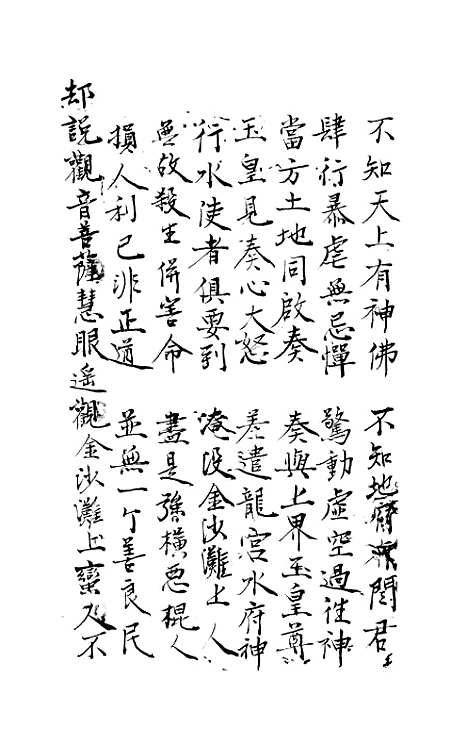 不知天上有神佛　不知地府閻君
肆行暴虐無忌憚　驚動虛空過往神
當方土地同啟奏　奏與上界玉皇尊
玉皇見奏心大怒　差遣龍宮水府神
行水使者俱要到　淹沒金沙灘上人
無故殺生併害命　盡是強橫惡棍人
損人利己非正道　並無一个善良民
却說觀音菩薩慧眼遙觀金沙灘上蠻人不